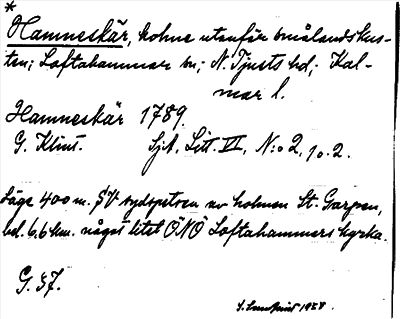 *
Hamneskär, holme utanför smålandskus-
ten; Loftahammar sn; N. Tjusts hd; Kal-
mar l.
Hamneskär 1789.
G. Klint. Sjk. Litt. VI, N:o 2, 10.2.
Läge 400 m. SV sydspetsen av holmen St. Garpen,
bel. 6,6 km. något litet ÖNÖ Loftahammars kyrka.
G. 37.
1958.